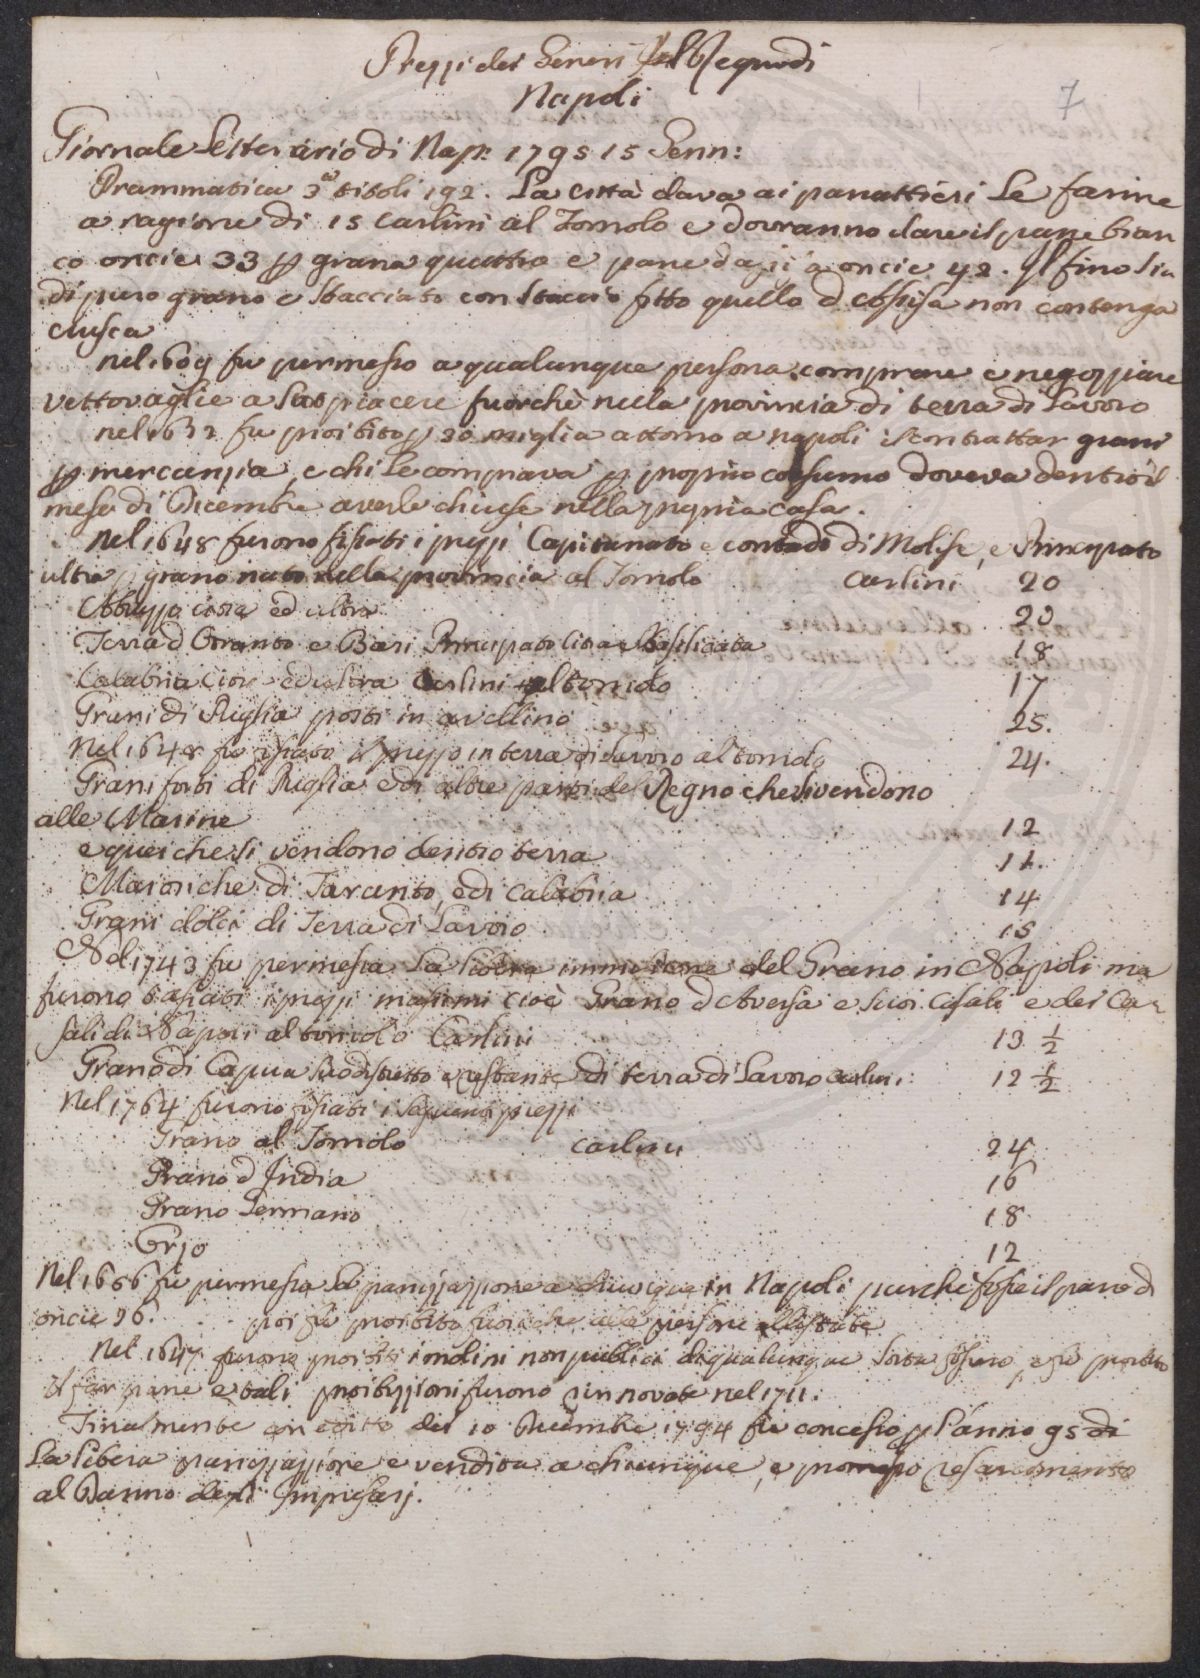 Prezzi dei Generi del Regno di
Napoli
7
Giornale Letterario di Nap: 1795 15 Genn:
Prammatica 3a titoli 192. La città dava ai panattieri le farine
a ragione di 15 carlini al Tomolo e dovranno dare il pane bian
co oncie 33 p grana quattro e pane a oncie 42. Il fino sia
di puro grano e stacciato con staccio fitto quello non contenga
crusca
nel 1609 fu permesso a qualunque persona comprare e negoziare
vettovaglie a suo piacere fuorchè nella provincia di terra di Lavoro
nel 1632 fu proibito p 30 miglia attorno a napoli contrattar grani
p mercanzia, e chi le comprava p proprio consumo doveva dentro il
mese di Dicembre averle chiuse nella propria casa.
Nel 1648 furono fissati i prezzi Capitanato e contado di Molise, e Principato
ultra p grano nato nella provincia al Tomolo carlini 20
Abruzzo citra ed ultra 20
Terra d Otranto e Bari Principato citra e Basilicata 18
Calabria citra ed ultra Carlini al tomolo 17
Grani di Puglia posti in avellino 25.
Nel 1648 fu fissato il prezzo in terra di Lavoro al tomolo 24.
Grani forti di Puglia e di altre parti del Regno che si vendono
alle Marine 12
e quei che si vendono dentro terra 11.
Maroniche di Taranto, e di Calabria 14
Grani dolci di Terra di Lavoro 15
Nel 1743 fu permessa la libera immissione del Grano in Napoli ma
furono tassati i prezzi massimi cioè Grano d Aversa e suoi Casali e dei Ca-
sali di Napoli al tomolo Carlini 13 1/2
Grano di Capua suo distretto e restante di terra di Lavoro carlini: 12 1/2
Nel 1764 furono fissati i seguenti prezzi
Grano al Tomolo carlini 24
Grano d India 16
Grano Germano 18
Orzo 12
Nel 1666 fu permessa la panizzazione a chiunque in Napoli purche fosse il pane d
oncie 26. poi fu proibito fuorche alle persone
Nel 1647 furono proibiti i molini non publici di qualunque sorta fossero, e fu proibito
il far pane e tali proibizioni furono rinnovate nel 1711.
Finalmente con editto dei 10 Dicembre 1794 fu concesso p l'anno 95 di
La libera panizzazione e vendita a chiunque, e promesso resarcimento
al Danno degli Impresarj.